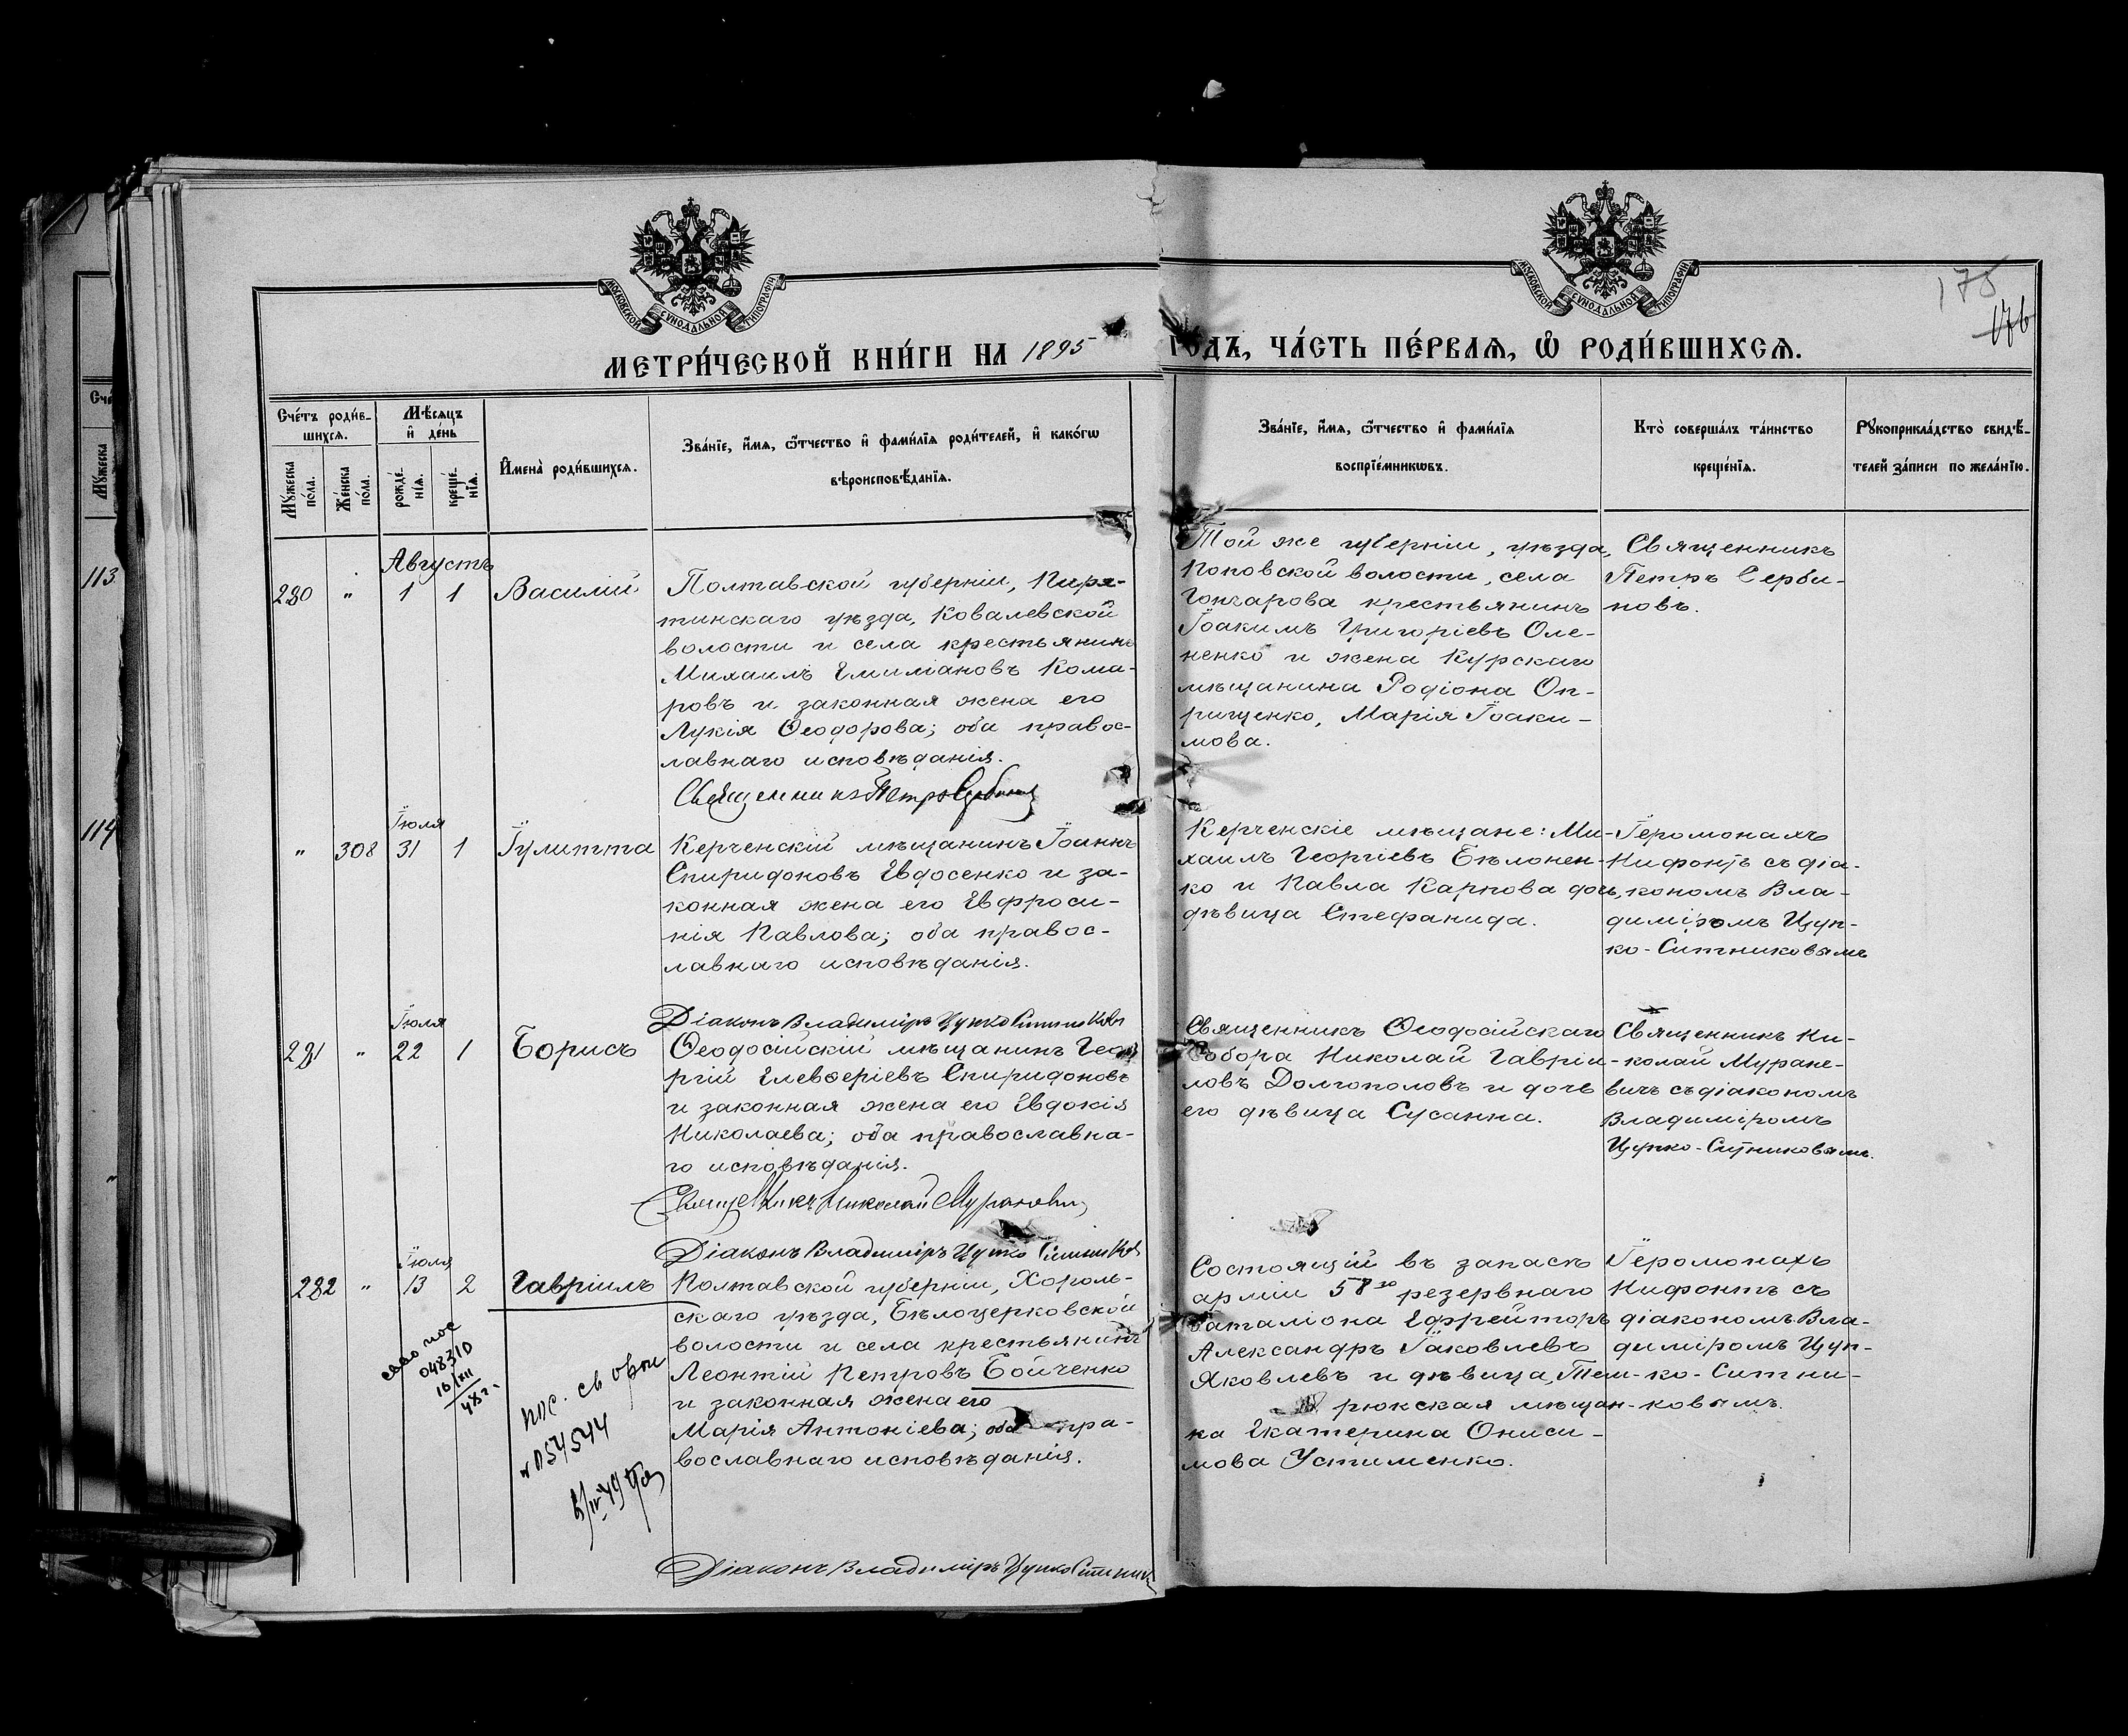 МОСКОВСКОЙ СѴНОДАЛЬНОЙ ТИПОГРАФІИ
МОСКОВСКОЙ СѴНОДАЛЬНОЙ ТИПОГРАФІИ
175
176
МЕТРИ́ЧЕСКОЙ КНИ́ГИ НА 1895
ГО́ДЪ, ЧА́СТЬ ПЕ́РВАѦ, Ѡ҆ РОДИ́ВШИХСѦ.
Сче́тъ роди́в-
шихсѧ.
Мѣ́сѧцъ
и҆ де́нь
Мꙋ́жеска
по́ла.
Же́нска
по́ла.
рожде́-
нїѧ.
креще́-
нїѧ.
И҆мена̀ роди́вшихсѧ.
Зва́нїе, и҆́мѧ, ѻ҆́тчество и҆ фами́лїѧ роди́телей, и҆ како́гѡ
вѣроисповѣ́данїѧ.
Зва́нїе, и҆́мѧ, ѻ҆́тчество и҆ фами́лїѧ
воспрїе́мникѡвъ.
Кто̀ соверша́лъ та́инство
креще́нїѧ.
Рꙋкоприкла́дство свидѣ́-
телей за́писи по жела́нїю.
Мꙋ́жеска
113
114
Августъ
280 " 1 1 Василій
Полтавской губерніи, Пиря-
тинскаго уѣзда, Ковалевской
волости и села крестьянинъ
Михаилъ Емиліановъ Кома-
ровъ и законная жена его
Лукія Ѳеодорова; оба правос-
лавнаго исповѣданія.
Священникъ Петръ Сербиновъ
Той же губерніи, уѣзда,
Поповской волости, села
Гончарова крестьянинъ
Іоакимъ Григоріевъ Оле-
ненко и жена Курскаго
мѣщанина Родіона Оп-
рищенко, Марія Іоаки-
мова.
Священникъ
Петръ Серби-
новъ.
Іюля
" 308 31 1 Іулитта
Керченскій мѣщанинъ Іоаннъ
Спиридоновъ Евдосенко и за-
конная жена его Евфроси-
нія Павлова; оба правос-
лавнаго исповѣданія.
Діаконъ Владиміръ Цупко Ситниковъ
Керченскіе мѣщане: Ми-
хаилъ Георгіевъ Бѣлонен-
ко и Павла Карпова дочь,
дѣвица Стефанида.
Іеромонахъ
Нифонтъ съ діа-
кономъ Вла-
диміромъ Цуп-
ко-Ситниковымъ
Іюля
281 " 22 1 Борисъ
Ѳеодосійскій мѣщанинъ Гео-
ргій Елевѳеріевъ Спиридоновъ
и законная жена его Евдокія
Николаева; оба православна-
го исповѣданія.
Священникъ Николай Мураневичъ
Діаконъ Владиміръ Цупко Ситниковъ
Священникъ Ѳеодосійскаго
Собора Николай Гавріи-
ловъ Долгополовъ и дочь
его дѣвица Сусанна.
Священникъ Ни-
колай Муране-
вичъ съ діакономъ
Владиміромъ
Цупко-Ситниковымъ.
Іюля
282 " 13 2 Гавріилъ
Полтавской губерніи, Хороль-
скаго уѣзда, Бѣлоцерковской
волости и села крестьянинъ
Леонтій Петровъ Бойченко
и законная жена его
Марія Антоніева; оба пра-
вославнаго исповѣданія.
Діаконъ Владиміръ Цупко Ситников
Состоящій въ запасѣ
арміи 58го резервнаго
баталіона Ефрейторъ
Александръ Іаковлевъ
Яковлевъ и дѣвица, Тем-
рюкская мѣщан-
ка Екатерина Ониси-
мова Устименко.
Іеромонахъ
Нифонтъ съ
діакономъ Вла-
диміромъ Цуп-
ко-Ситни-
ковымъ.
048310
16/XII
48г.
054544